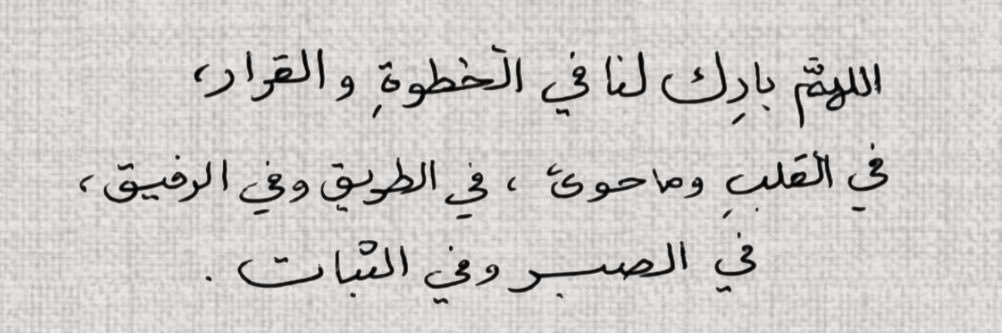 اللهمَّ بارِك لنا في الخطوةِ والقرار،
في القلبِ وما حوىٰ ، في الطريقِ وفي الرفيق،
في الصبر وفي الثبات .